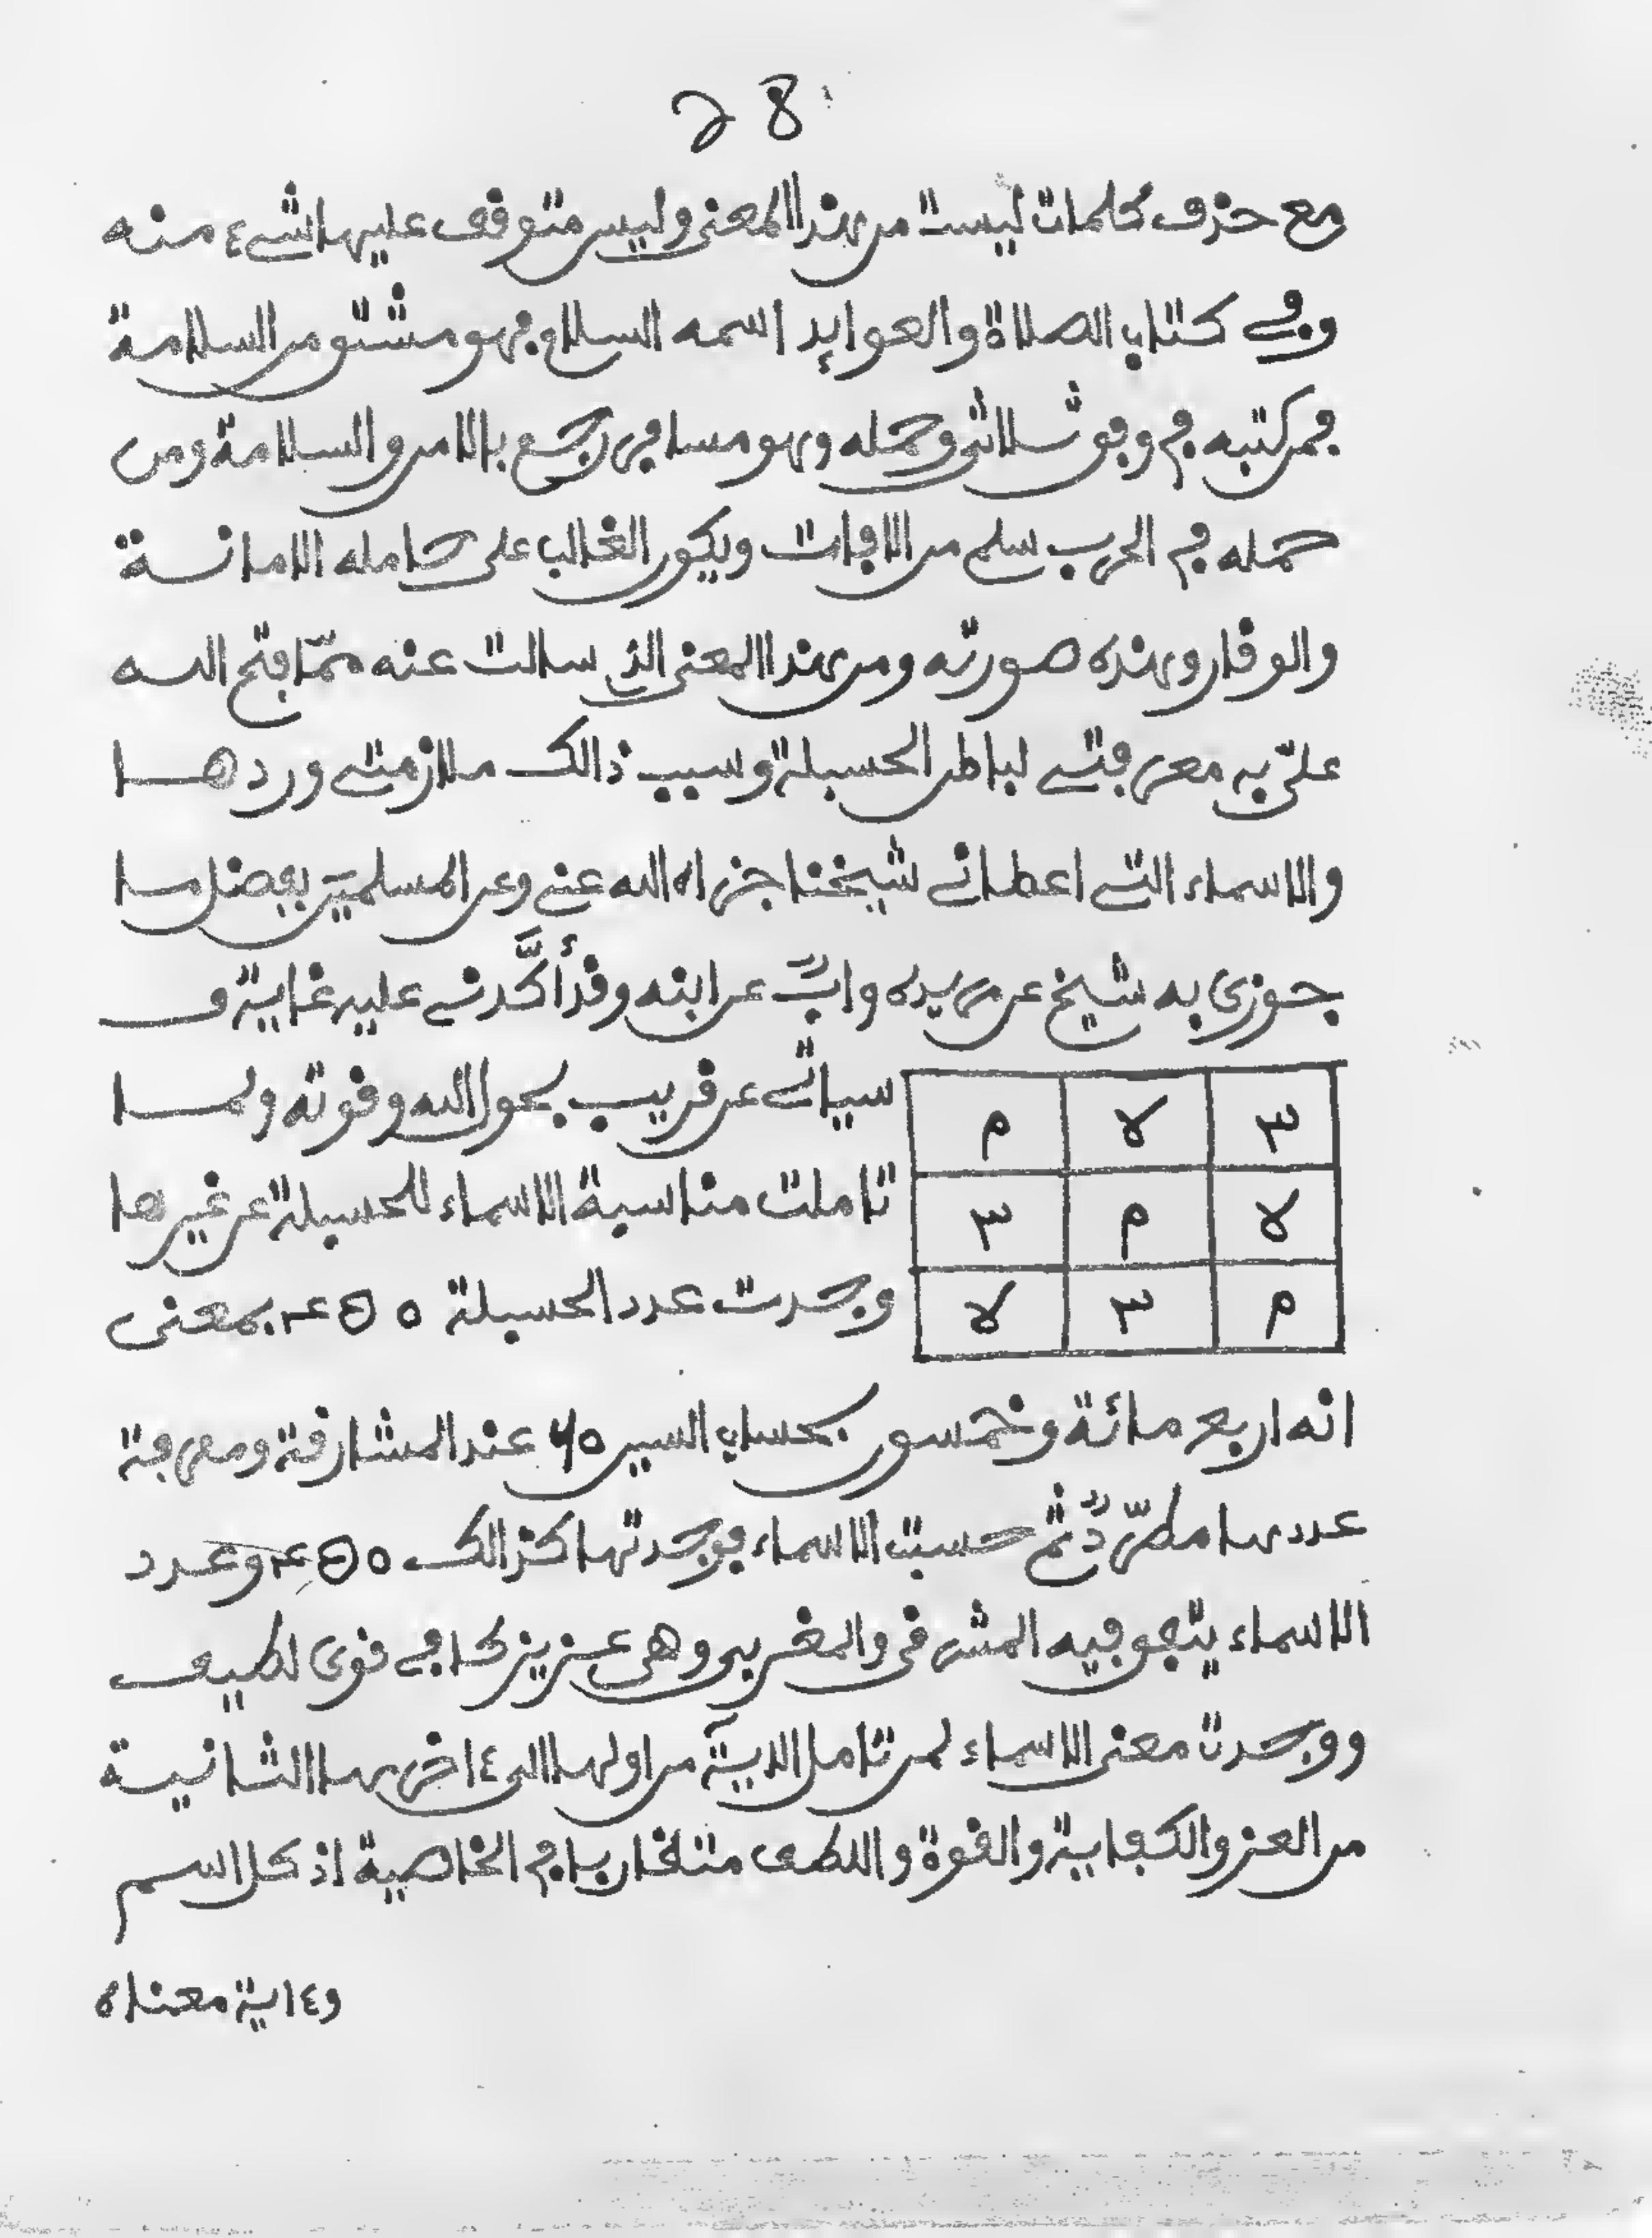 28
مع حذف كلمات ليست من هذا المعنى وليس متوقف عليها شىء منه
وفي كتاب الصلاة والعوايد اسمه السلام فهو مشتق من السلامة
فمن كتبه في وفق ثلاثى وحمله وهو مسافر رجع بالامن والسلامة ومن
حمله في الحرب سلم من الافات ويكون الغالب على حامله الامانة
والوقار وهذه صورته ومن هذا المعنى الذي سالت عنه ممّا فتح الله
علىّ به معرفتي لباطن الحسبلة وسبب ذالك ملازمتي وردها
والاسماء التي اعطاني شيخنا جزاه الله عني وعن المسلمين بفضل ما
جوزى به شيخ عن مريده وابٌ عن ابنه وقد أكَّدني عليه غاية و
سياتي عن قريب بحول الله وقوته ولما
تاملت مناسبة الاسماء للحسبلة عن غيرها
وجدت عدد الحسبلة ۴۵۰ بمعنى
٣ لا م
لا م ٣
م ٣ لا
انه اربع مائة وخمسون بحساب السين ٦٠ عند المشارقة ومعرفة
عددها مطرّدٌ ثم حسبت الاسماء فوجدتها كذالك ۴۵۰ وعدد
الاسماء يتفق فيه المشرقى والمغربى وهى عزيز كافي قوى لطيف
ووجدت معنى الاسماء لمن تامل الآية من اولها الى ءاخرها الثانية
من العز والكفاية والقوة واللطف متقاربا في الخاصية اذ كل اسم
وءاية معناه